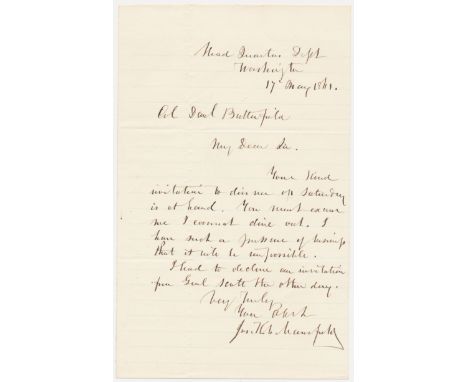 Head Quarters Dept
Washington
17 May 1861.
Col Danl Butterfield
My Dear Sir.
Your kind
invitation to dinner on Saturday
is at hand. You must excuse
me I cannot dine out. I
have such a pressure of business
that it will be impossible.
I had to decline an invitation
from Genl Scott the other day.
Very Truly
Your Obt St
Jos K F Mansfield